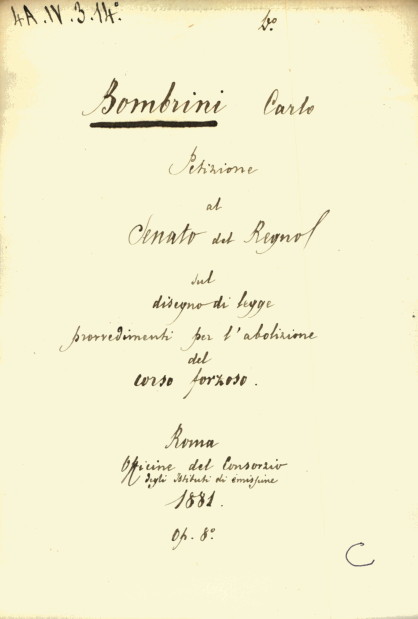 4A.IV.3.14º.
Bombrini Carlo
Petizione
al
Senato del Regno
sul
disegno di legge
provvedimenti per l'abolizione
del
corso forzoso.
Roma
Officine del Consorzio
degli Istituti di emissione
1881.
Op. 8º
C